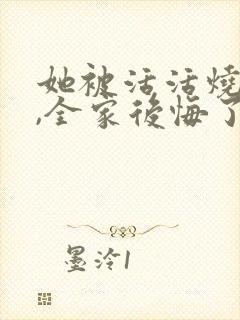 她被活活燒
,全家後悔了
墨泠1